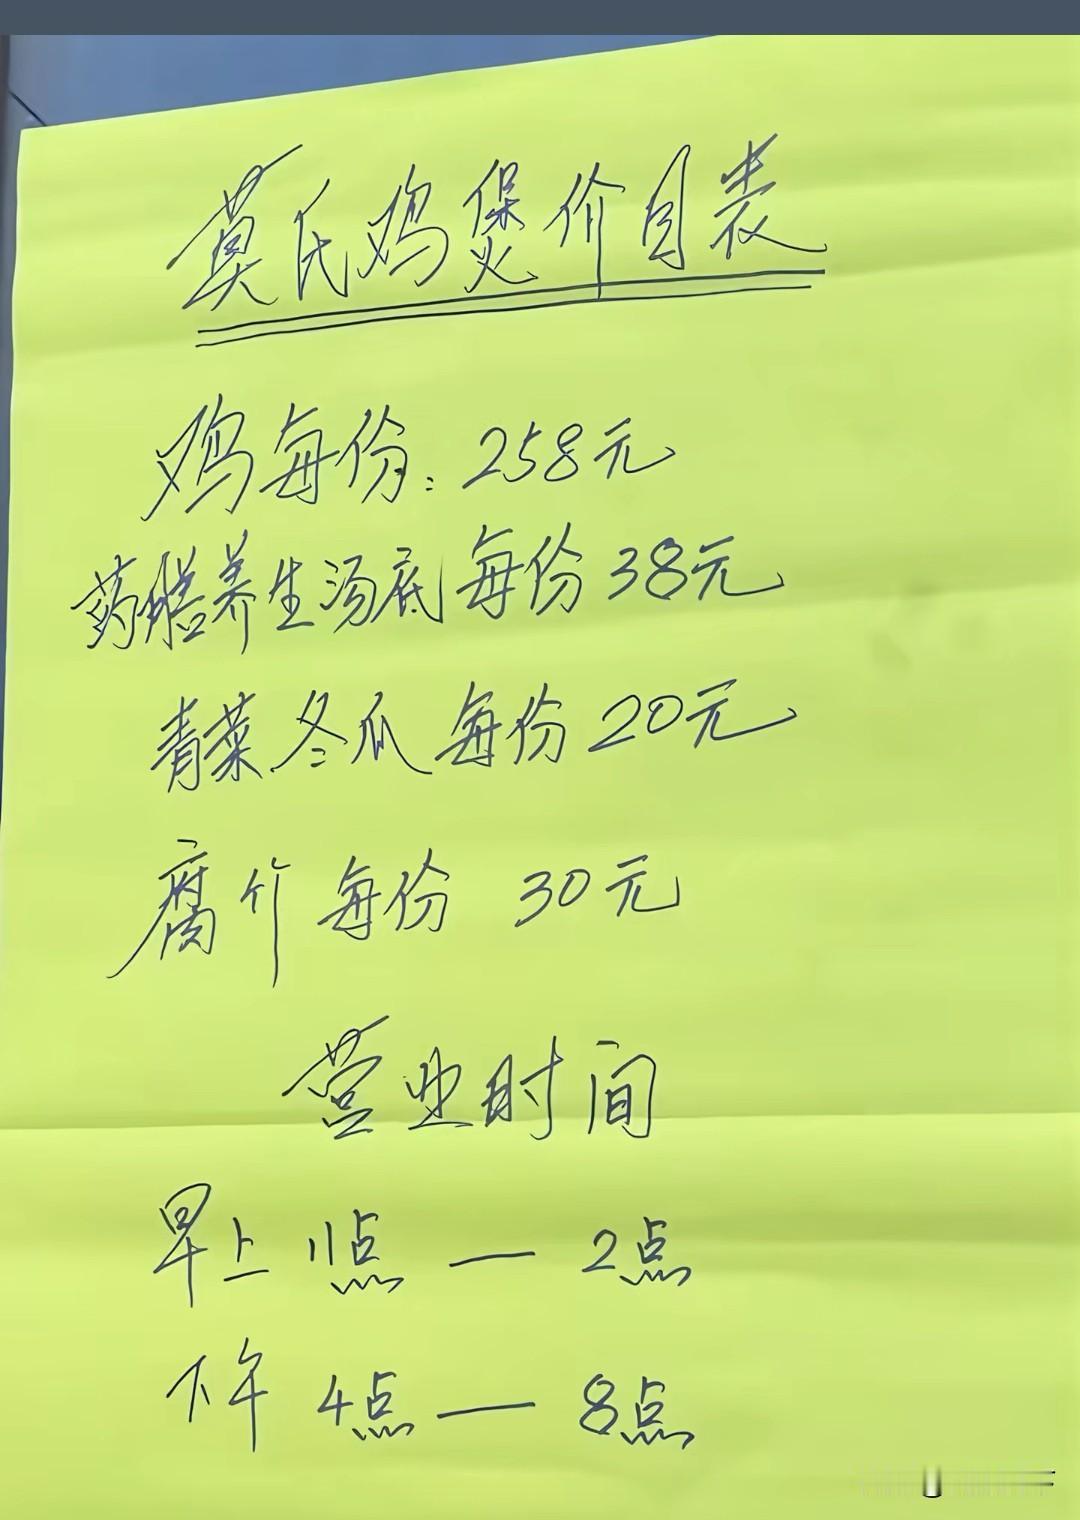 莫氏鸡煲价目表
鸡每份：258元
药膳养生汤底每份38元
青菜冬瓜每份20元
腐竹每份 30元
营业时间
早上 11点 — 2点
下午 4点 — 8点